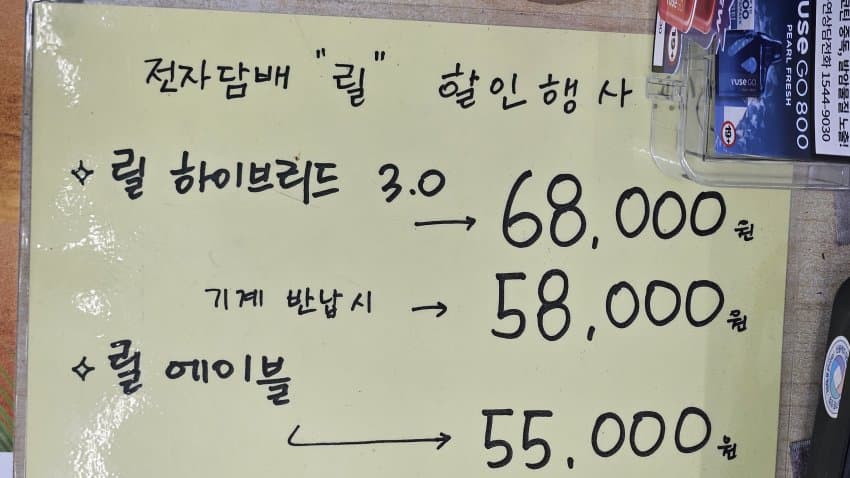 전자담배 "릴" 할인행사
✧ 릴 하이브리드 3.0
→ 68,000원
기계 반납시 → 58,000원
✧ 릴 에이블
→ 55,000원
vuse GO 800
PEARL FRESH
VUSE GO
연상담전화 1544-9030
19+
NEW